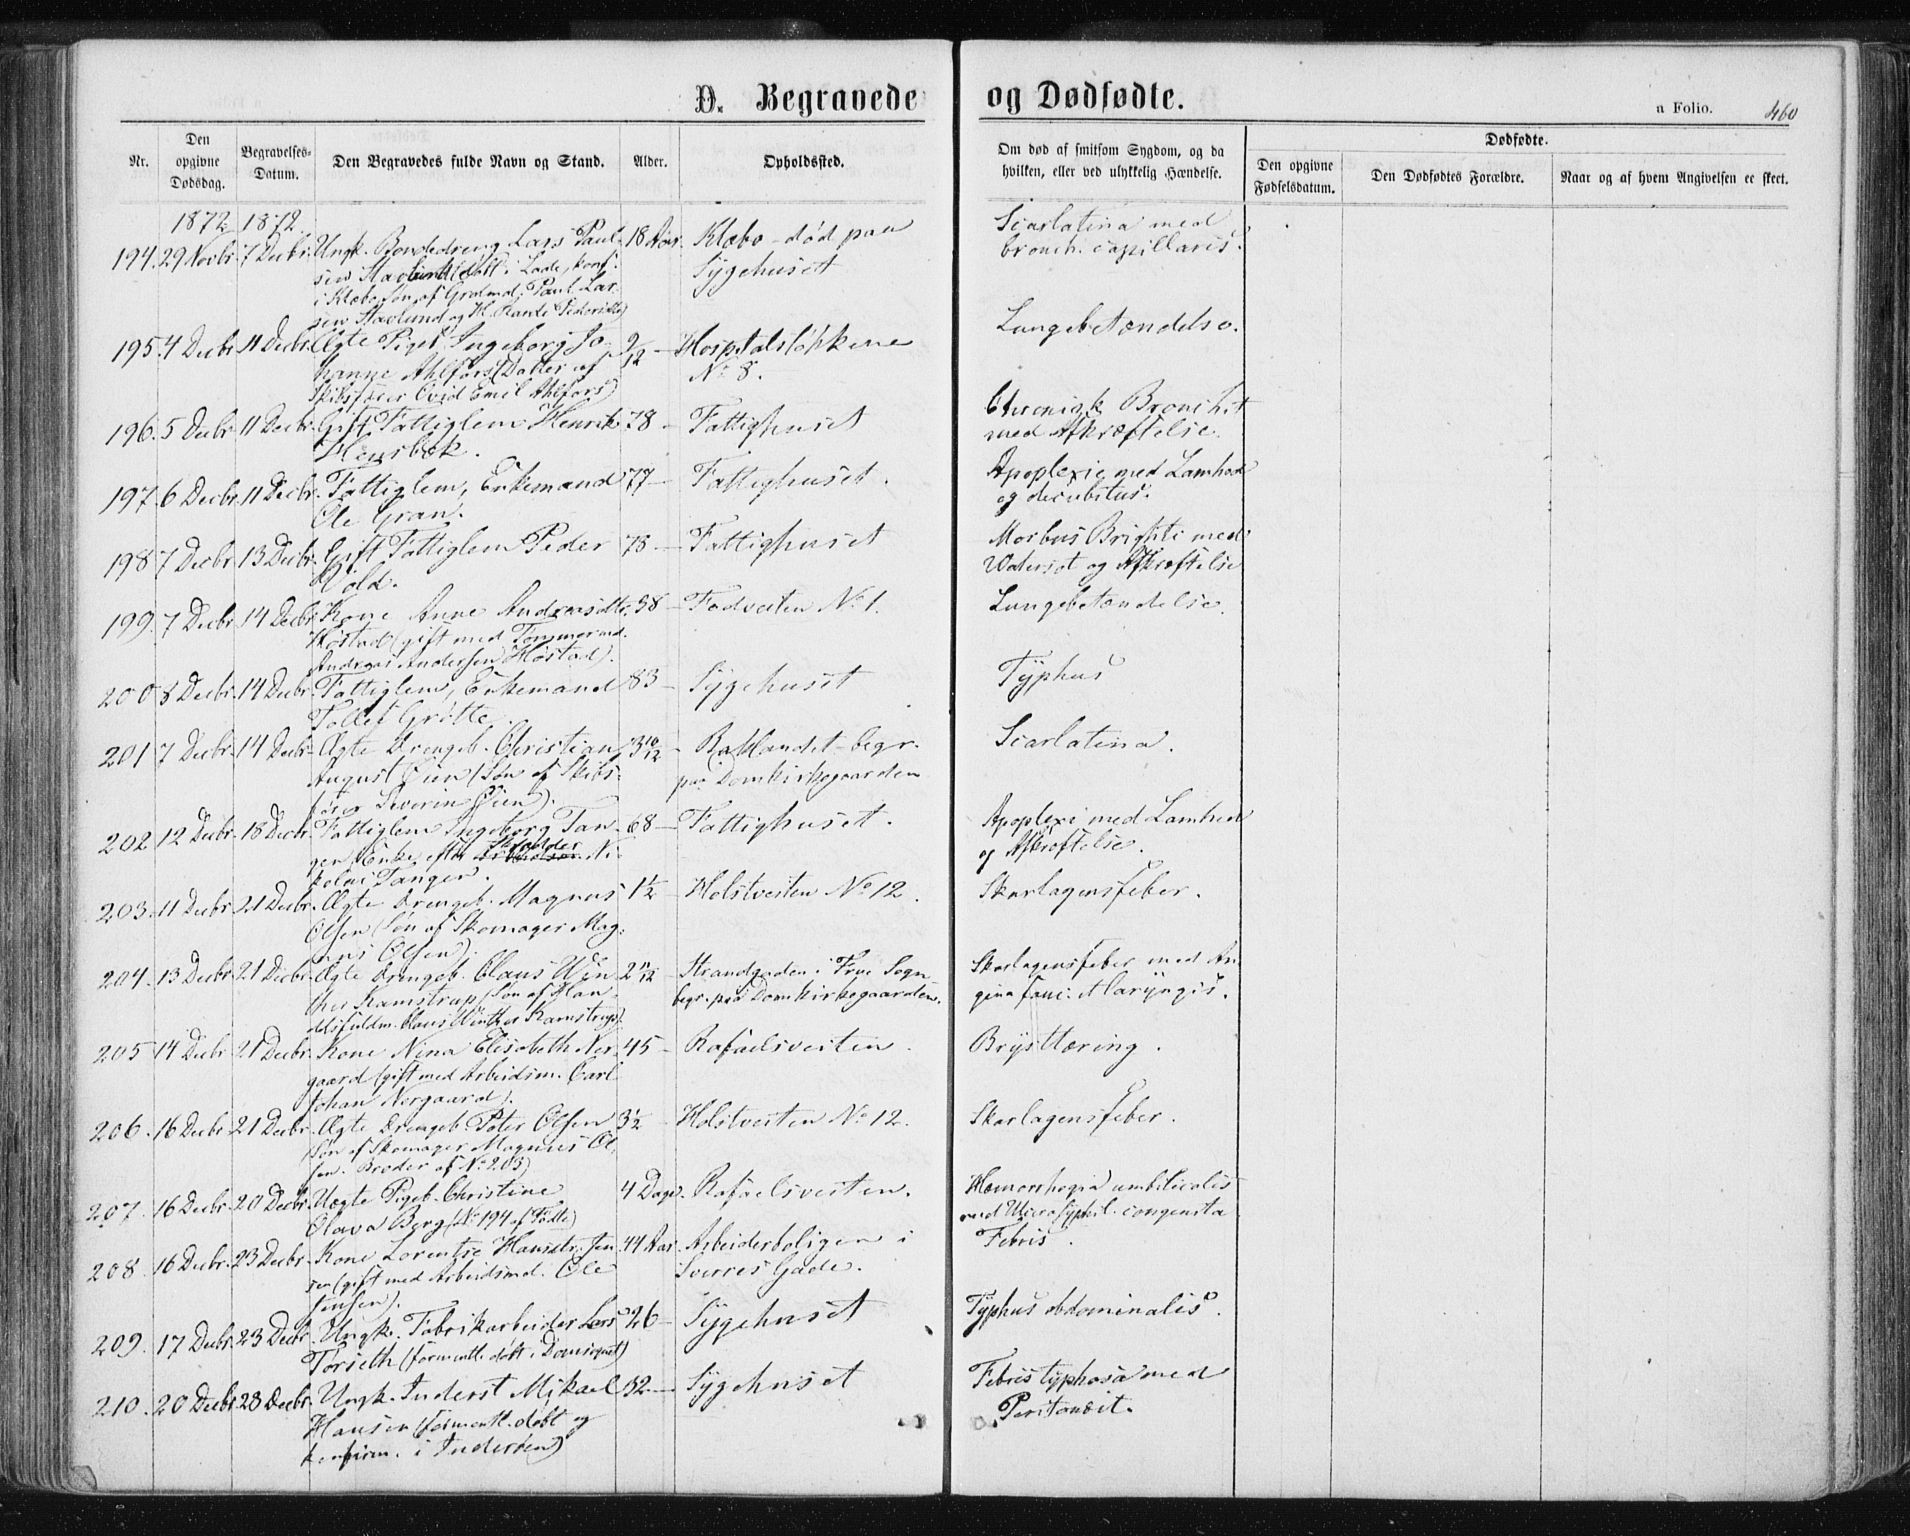 D. Begravede og Dødfødte.
a Folio. 460
Nr.
Den opgivne Dødsdag.
Begravelses-Datum.
Den Begravedes fulde Navn og Stand.
Alder.
Opholdssted.
Om død af smitsom Sygdom, og da hvilken, eller ved ulykkelig Hændelse.
Dødfødte.
Den opgivne Fødselsdatum.
Den Dødfødtes Forældre.
Naar og af hvem Angivelsen er skeet.
1872 1872
194. 29 Novbr. 7 Decbr. Ungk. Bondedreng Lars Paul- 18 Aar. Klæbo - død paa Scarlatina med
sen døbt i Lade, konf. Sygehuset bronch. capillaris.
i Klæbo Søn af Grdmd. Paul Lar-
sen
195. 4 Decbr. 11 Decbr. Ægte Pigeb. Ingeborg Jo- 9/12 — Hospitalsløkkene Lungebetændelse.
hanne Ahlfors (Datter af No 8.
Skibsfører Ovid Emil Ahlfors)
196. 5 Decbr. 11 Decbr. Gift Fattiglem Henrik 78 — Fattighuset Chronisk Bronchit
Flensbek. med Afkræftelse.
197. 6 Decbr. 11 Decbr. Fattiglem, Enkemand 77 — Fattighuset. Apoplexie med Lamhed
Ole Gran. og decubitus.
198 7 Decbr. 13 Decbr. Gift Fattiglem Peder 78 — Fattighuset Morbus Brighti med
Vold. Vatersot og Afkræftelse
199. 7 Decbr. 14 Decbr. Kone Anne Andreasdtr. 38 — Fadveiten No 1. Lungebetændelse.
Høstad (gift med Tømmermd.
Andreas Andersen Høstad).
200 8 Decbr. 14 Decbr. Fattiglem, Enkemand 83 — Sygehuset Typhus
Tollef Grøtte.
201 7 Decbr. 14 Decbr. Ægte Drengeb. Christian 3 10/12 — Baklandet - begr. Scarlatina.
August Øien (Søn af Skibs- paa Domkirkegaarden
fører Severin Øien).
202 12 Decbr. 18 Decbr. Fattiglem Ingeborg Tan- 68 — Fattighuset. Apoplexi med Lamhed
gen (Enke efter Skrædder Ni- og Afkræftelse.
kolai Tangen.
203. 11 Decbr. 21 Decbr. Ægte Drengeb. Magnus 1 1/2 — Holstveiten No 12. Skarlagensfeber.
Olsen (Søn af Skomager Mag-
nus Olsen).
204. 13 Decbr. 21 Decbr. Ægte Drengeb. Claus Win- 2 11/12 — Strandgaden i Frue Sogn Skarlagensfeber med An-
ther Kamstrup (Søn af Han- begr. paa Domkirkegaarden. gina fauc. & laryngis.
delsfuldm. Claus Winther Kamstrup).
205 14 Decbr. 21 Decbr. Kone Nina Elisabeth Nor- 45 — Rafaelsveiten. Brysttæring.
gaard (gift med Arbeidsm. Carl
Johan Norgaard).
206. 16 Decbr. 21 Decbr. Ægte Drengeb. Peter Olsen 3 1/2 — Holstveiten No 12. Skarlagensfeber.
(Søn af Skomager Magnus Ol-
sen. Broder af No 203)
207. 16 Decbr. 20 Decbr. Uægte Pigeb. Christine 4 Dage. Rafaelsveiten. Hæmorrhagia umbilicalis
Olava Berg (No 194 af Fødte) med Ulcera syphil. congenita
208. 16 Decbr. 23 Decbr. Kone Lorentse Hansdtr. Jen- 44 Aar. Arbeiderboligen i Febris.
sen (gift med Arbeidsmd. Ole Sverres Gade.
Jensen).
209. 17 Decbr. 23 Decbr. Ungk. Fabrikarbeider Lars 26 — Sygehuset Typhus abdominalis.
Torseth (formentl. døbt i Domsognet)
210. 20 Decbr. 28 Decbr. Ungk. Inderst Mikael 32 — Sygehuset Febris typhosa med
Hansen (formentl. døbt og Peritonæit.
konfirm. i Inderøen)